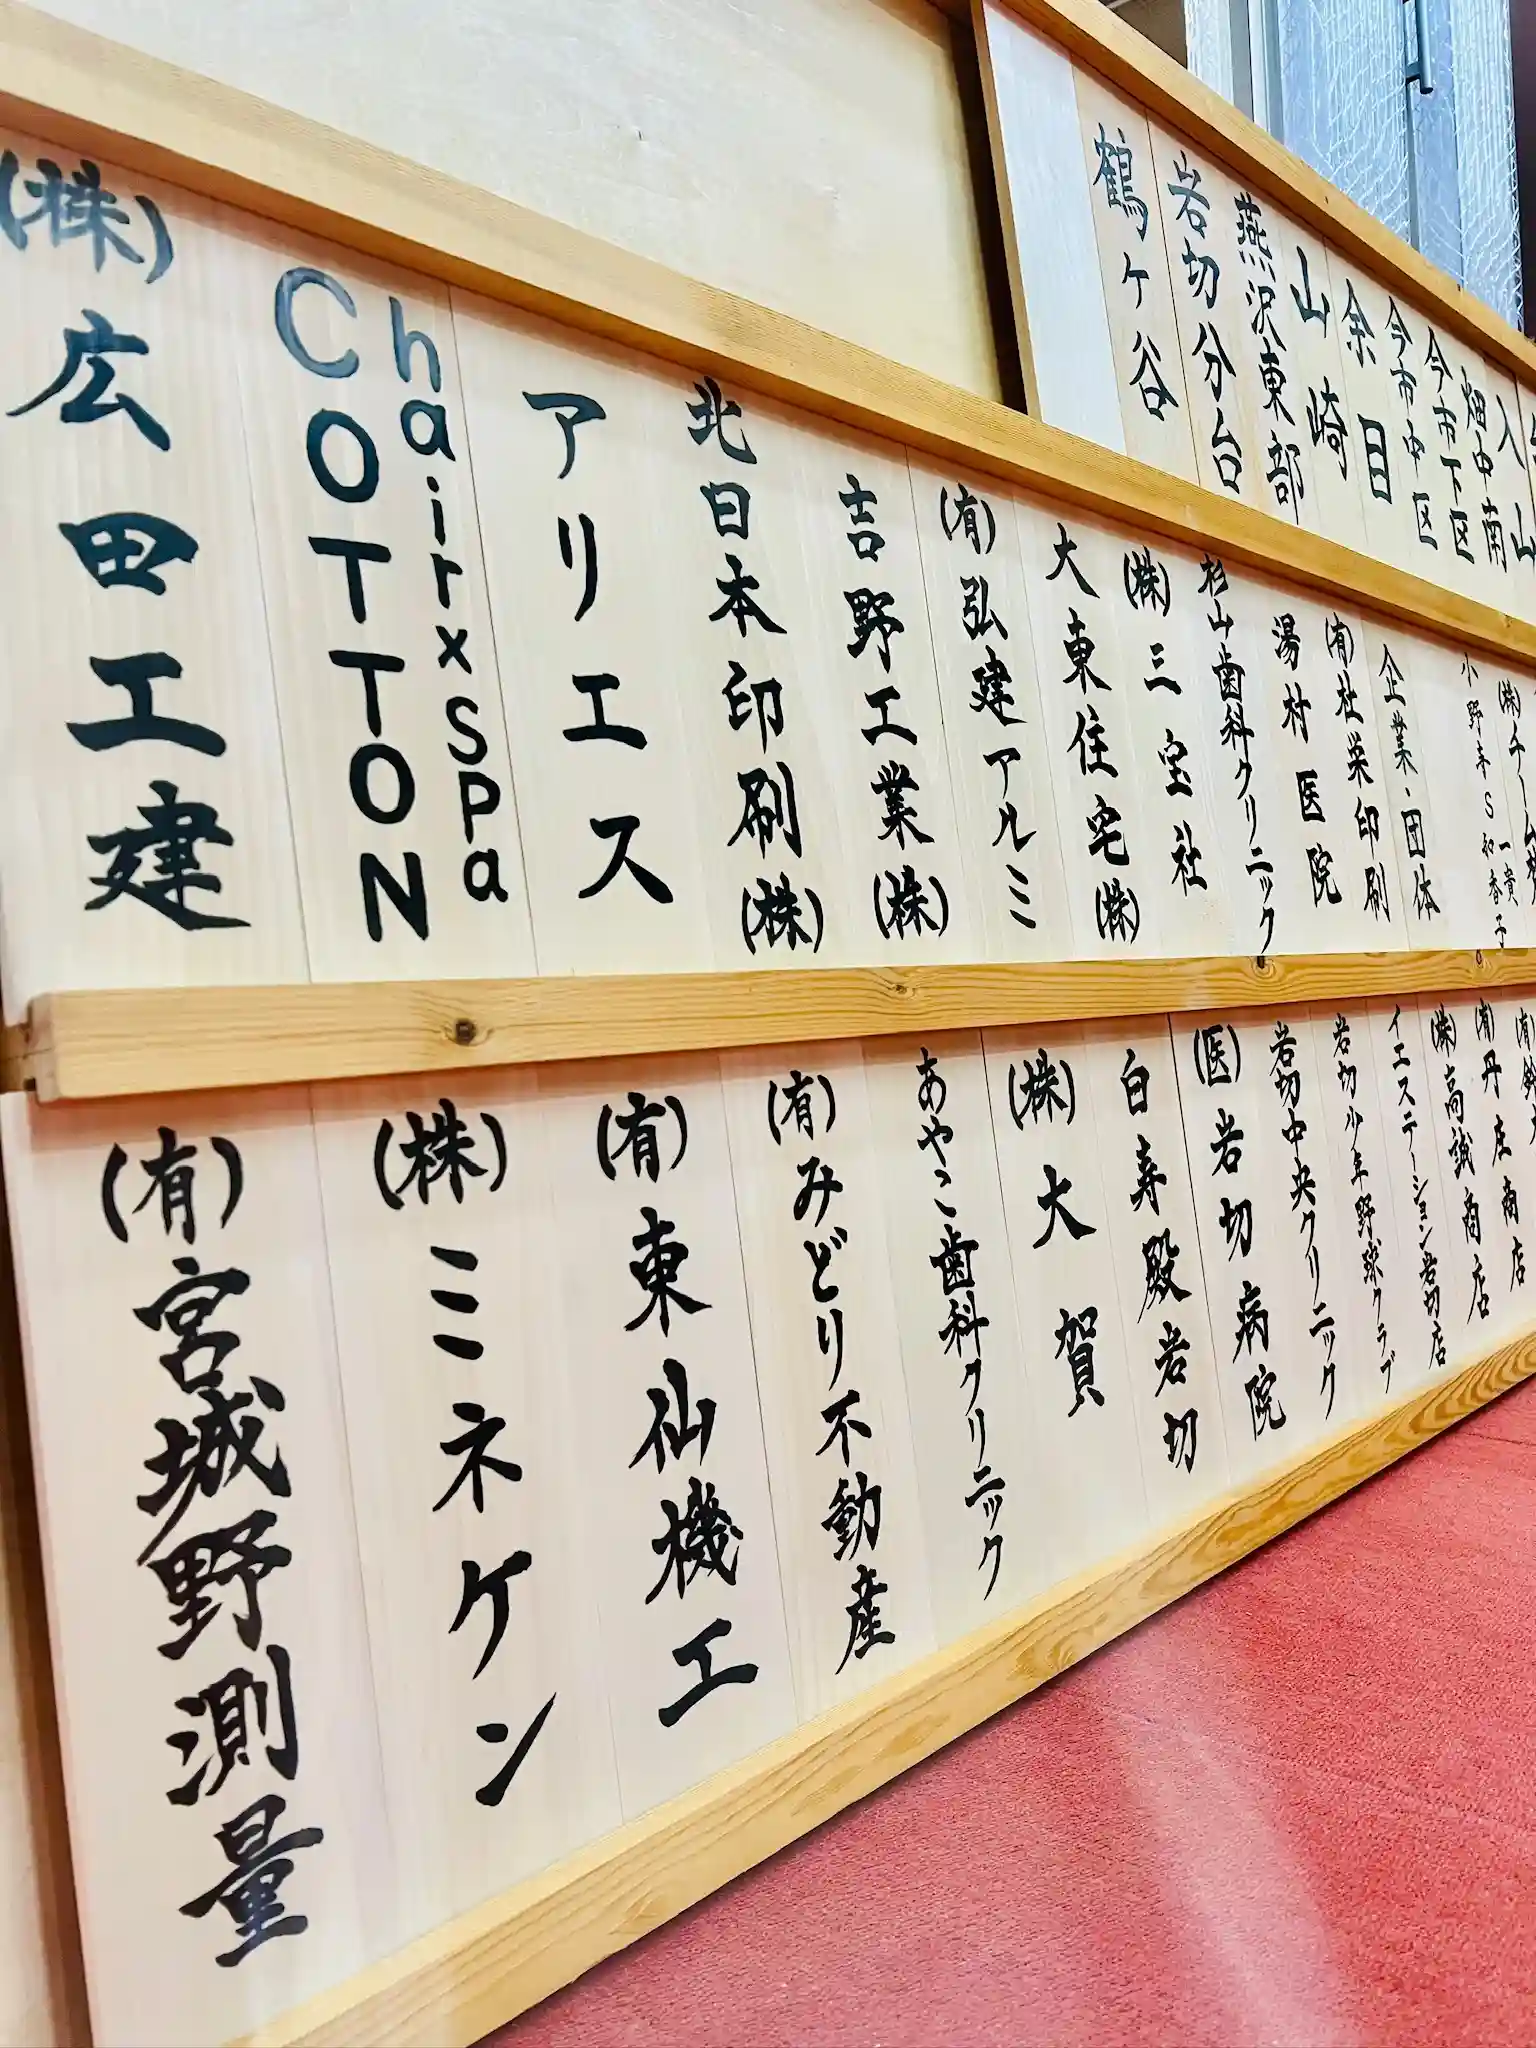 入山
畑中南
今市下区
今市中区
余目
山崎
燕沢東部
岩切分台
鶴ケ谷
企業・団体
(有)杜巣印刷
湯村医院
杉山歯科クリニック
(株)三宝社
大東住宅(株)
(有)弘建アルミ
吉野工業(株)
北日本印刷(株)
アリエス
hair x spa
COTTON
(株)広田工建
(有)丹庄商店
(株)高誠商店
イエステーション岩切店
岩切少年野球クラブ
岩切中央クリニック
(医)岩切病院
白寿殿岩切
(株)大賀
あやこ歯科クリニック
(有)みどり不動産
(有)東仙機工
(株)ミネケン
(有)宮城野測量